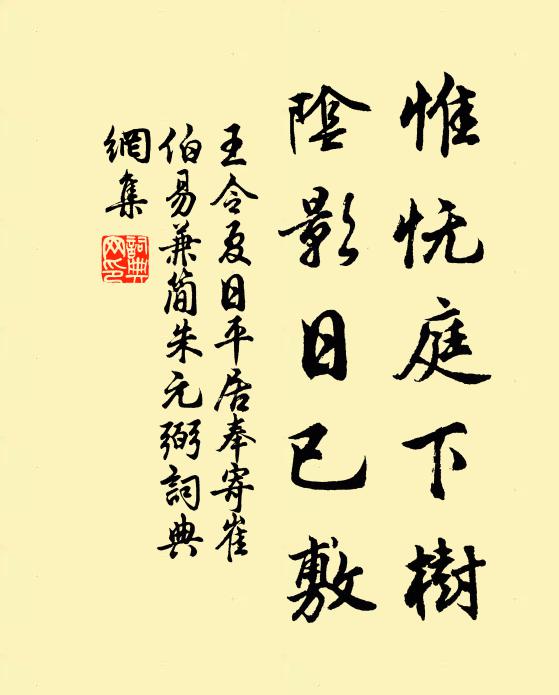 惟怃庭下樹
陰影日已敷
王令夏日平居奉寄崔
伯易兼簡朱元弼詞典
網集
詞典網印